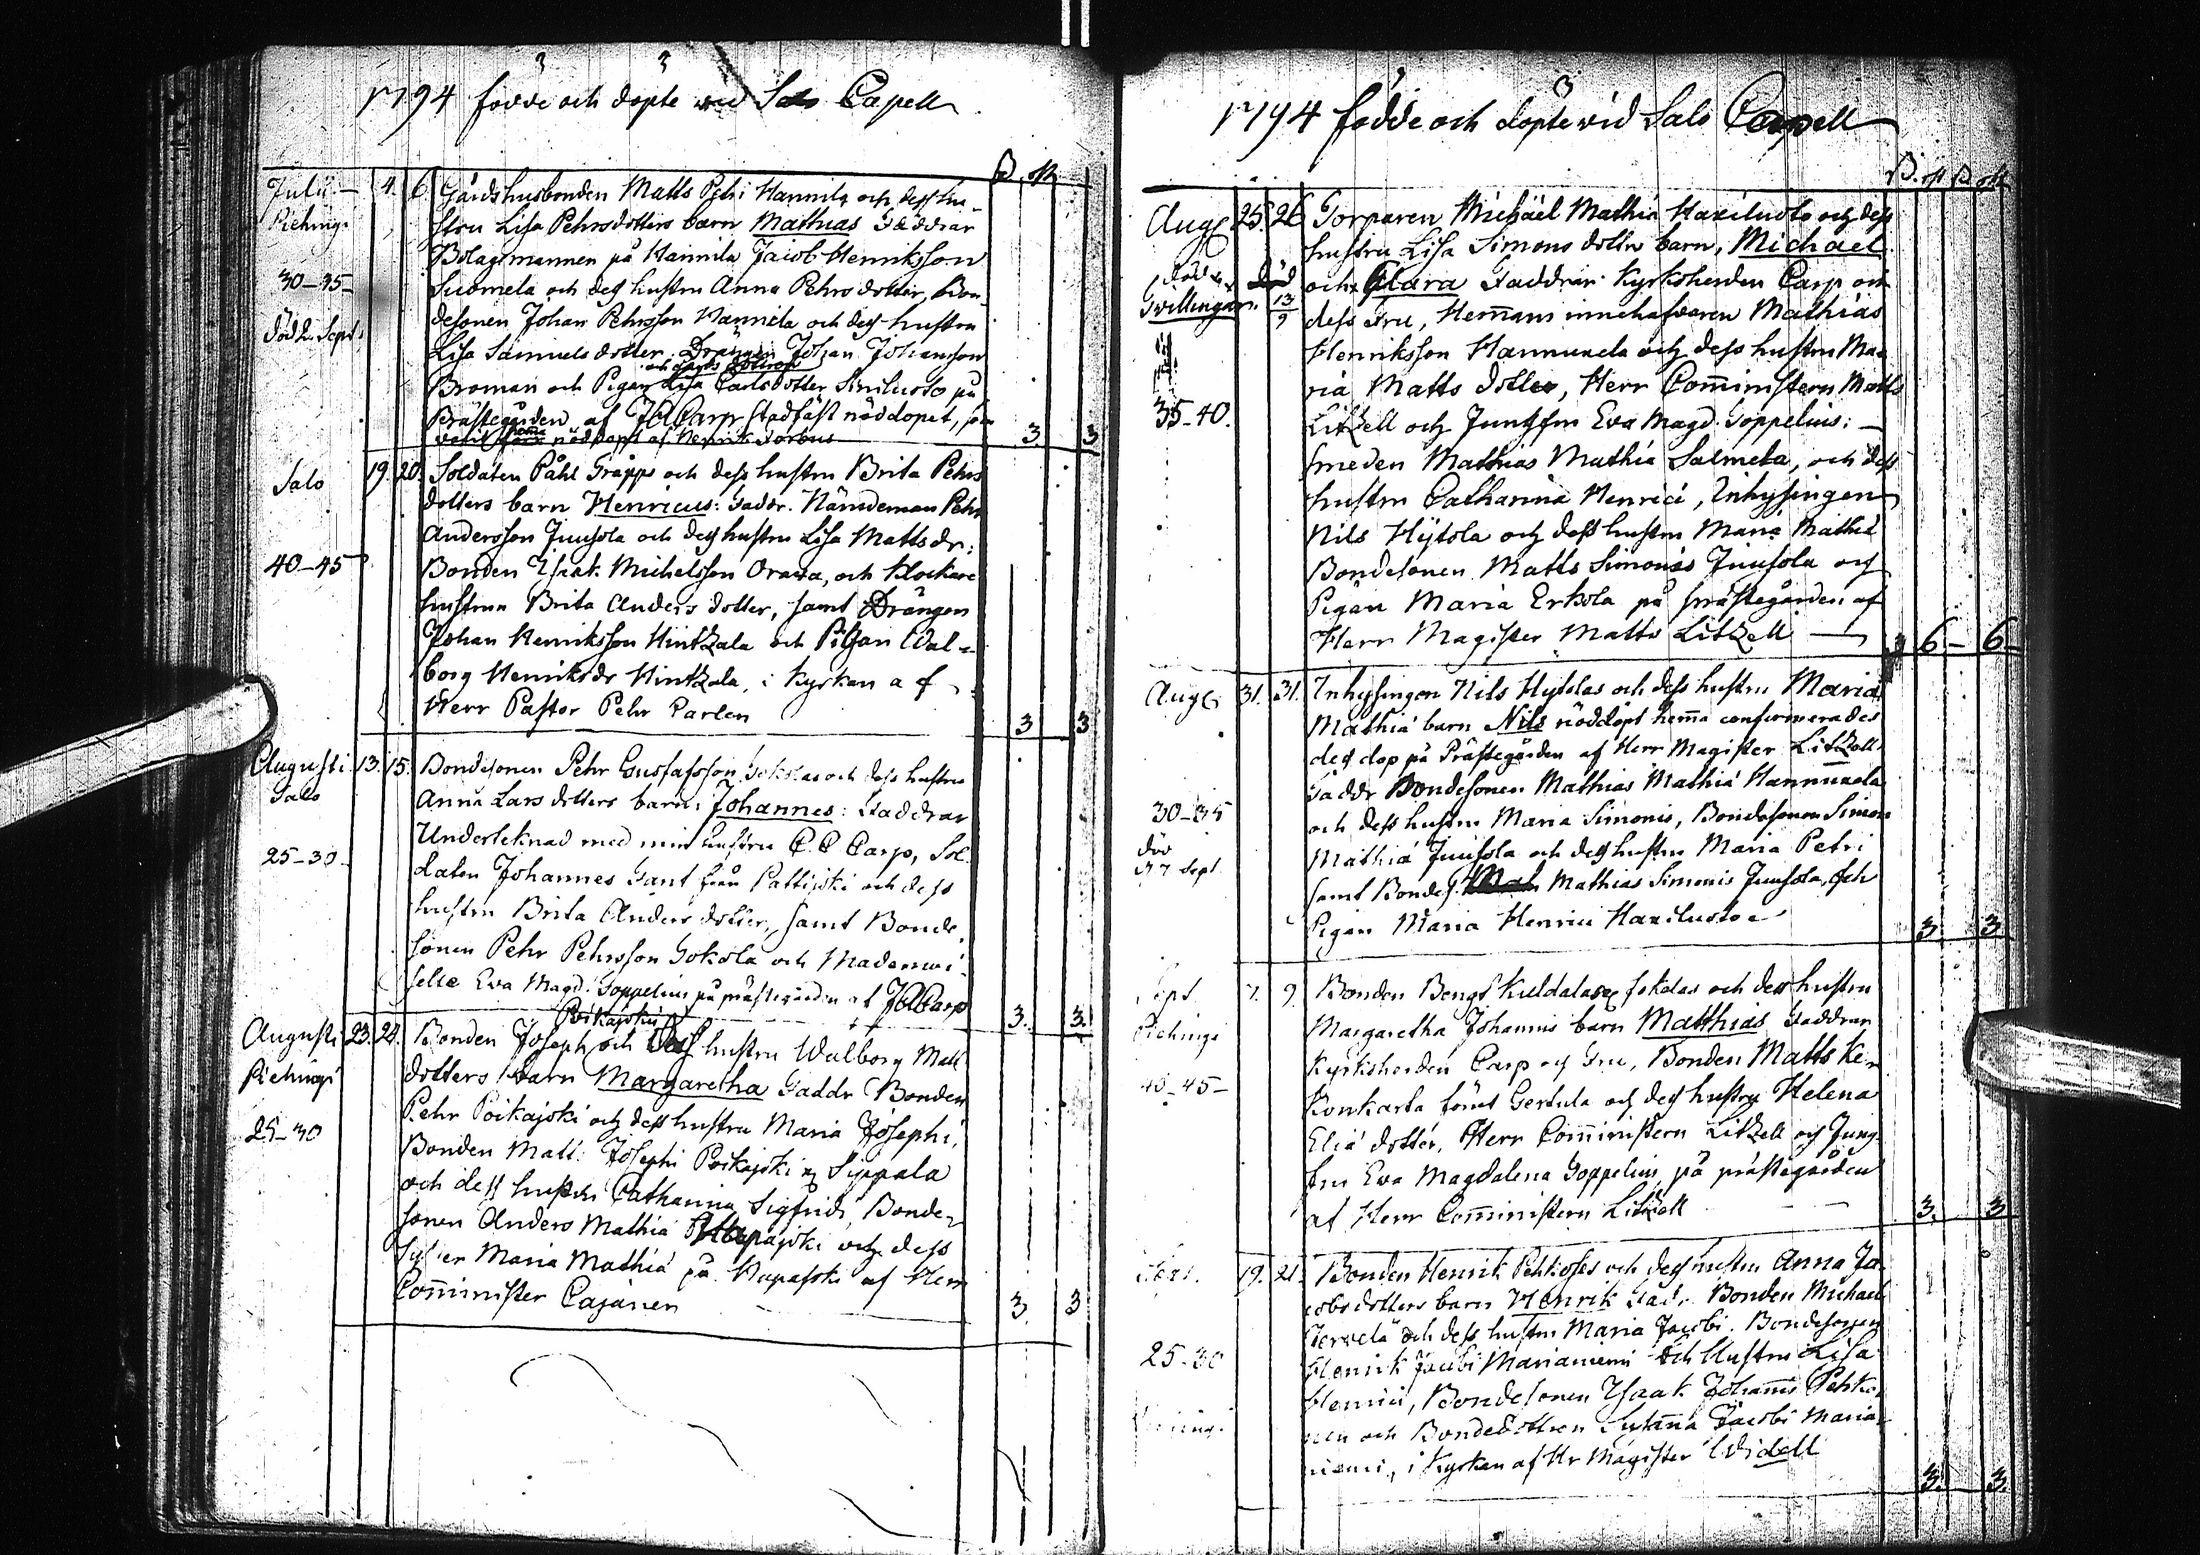 1794 födde och döpte vid Salo Capell
Julii 4. 6. Gårdshusbonden Matts Petri Hannila och dess hu-
Piehingi stru Lisa Pehrsdotters barn Mathias Faddrar
Bolagsmannen på Hannila Jacob Henriksson
30-35 Suomela och dess hustru Anna Pehrsdotter, Bon-
desonen Johan Pehrsson Hannila och dess hustru
död Sept: Lisa Samuelsdotter, Drängen Johan Johansson
Broman och Pigan Lisa Carlsdotter på
Prästegården af Carp stadfäst nöddopet, som
nöddöpt af Henrik 3 3
Salo 19. 20. Soldaten Påhl Grapps och dess hustru Brita Pehrs
dotters barn Henricus: Faddr. Nämdeman Pehr
Andersson Juusola och dess hustru Lisa Matts dr:
40-45 Bonden Isaak Michelsson Orawa, och Klockare
hustrun Brita Anders dotter, samt Drängen
Johan Henriksson Hintzala och Pigan Wal-
borg Henriksdr Hintzala, i Kyrkan af
Herr Pastor Pehr Carlen 3 3
Augusti 13. 15. Bondesonen Pehr Gustafsson Gokolas och dess hustru
Salo Anna Lars dotters barn: Johannes: Faddrar
Underteknad med min hustru C. C Carp, Sol-
25-30 daten Johannes Gant från Pattijoki och dess
hustru Brita Anders dotter, samt Bonde
sonen Pehr Pehrsson Gokola och Mademoi-
selle Eva Magd: Toppelius på prästegården af Carp 3. 3.
Poikajoki
Augusti 23. 24. Bonden Joseph och dess hustru Walborg Matts
Piehingi dotters barn Margaretha Faddr Bonden
Pehr Poikajoki och dess hustru Maria Josephi,
25-30 Bonden Matt: Josephi Poikajoki Sippala
och dess hustru Catharina Sigfridi, Bonde-
sonen Anders Mathiæ och dess
Syster Maria Mathiæ på af Herr
Comminister Cajanen 3. 3
1794 födde och döpte vid Salo Capell
Aug 25. 26 Torparen Michael Mathiæ Haxiluoto och dess
hustru Lisa Simons dotter barn, Michael
död och Clara Faddrar Kyrkoherden Carp och
Tvillingar 13/9 dess Fru, Hemmans innehafvaren Mathias
Henriksson Hannuxela och dess hustru Ma-
ria Matts dotter, Herr Comministern Matts
35-40. Litzell och Jungfru Eva Magd. Toppelius:
Smeden Mathias Mathiæ Salmela, och dess
hustru Catharina Henrici, Inhysingen
Nils Hytola och dess hustru Maria Mathiæ
Bondesonen Matts Simonis Juusola och
Pigan Maria Erkola på prästegården af
Herr Magister Matts Litzell 6 6
Aug 31. 31. Inhysingen Nils Hytolas och dess hustru Maria
Mathiæ barn Nils nöddöpt hemma confirmerades
dess dop på Prästegården af Herr Magister Litzell
Faddr Bondesonen Mathias Mathiæ Hannuxela
30-35 och dess hustru Maria Simonis, Bondesonen Simon
död Mathiæ Juusola och dess hustru Maria Petri
Sept. samt Bondes. Mathias Simonis Juusola, och
Pigan Maria Henrici Haxiluoto 3 3
Sept 7. 9. Bonden Bengt Kuldalas och dess hustru
Piehingi Margaretha Johannis barn Matthias Faddrar
Kyrkoherden Carp och Fru, Bonden Matts Ke-
40-45 Gertula och dess hustru Helena
Eliæ dotter, Herr Comministern Litzell och Jung
fru Eva Magdalena Toppelius på prästegården
af Herr Comministern Litzell 3. 3
Sept. 19. 21. Bonden Henrik Pehkoses och dess hustru Anna Ja-
cobsdotters barn Henrik Fad: Bonden Michael
Jervelä och dess hustru Maria Jacobi. Bondesonen
25-30 Henrik Jacobi Marianiemi och Hustru Lisa
Henrici, Bondesonen Isaak Johannis Pehko-
nen och Bondedottren Susanna Jacobi Maria-
niemi, i Kyrkan af Hr Magister Widell 3. 3.